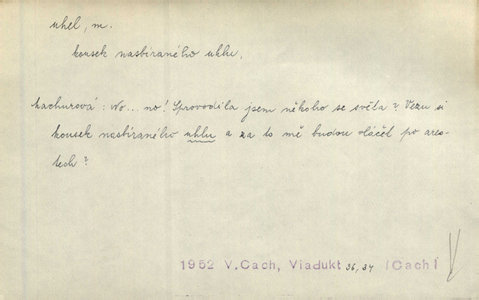 uhel, m.
kousek nasbíraného uhlu,
Machurová: No... no! Sprovodila jsem někoho se světa? Vezu si
kousek nasbíraného uhlu a za to mě budou vláčet po ares-
tech?
1952 V. Cach, Viadukt 36, 34 (Cach)